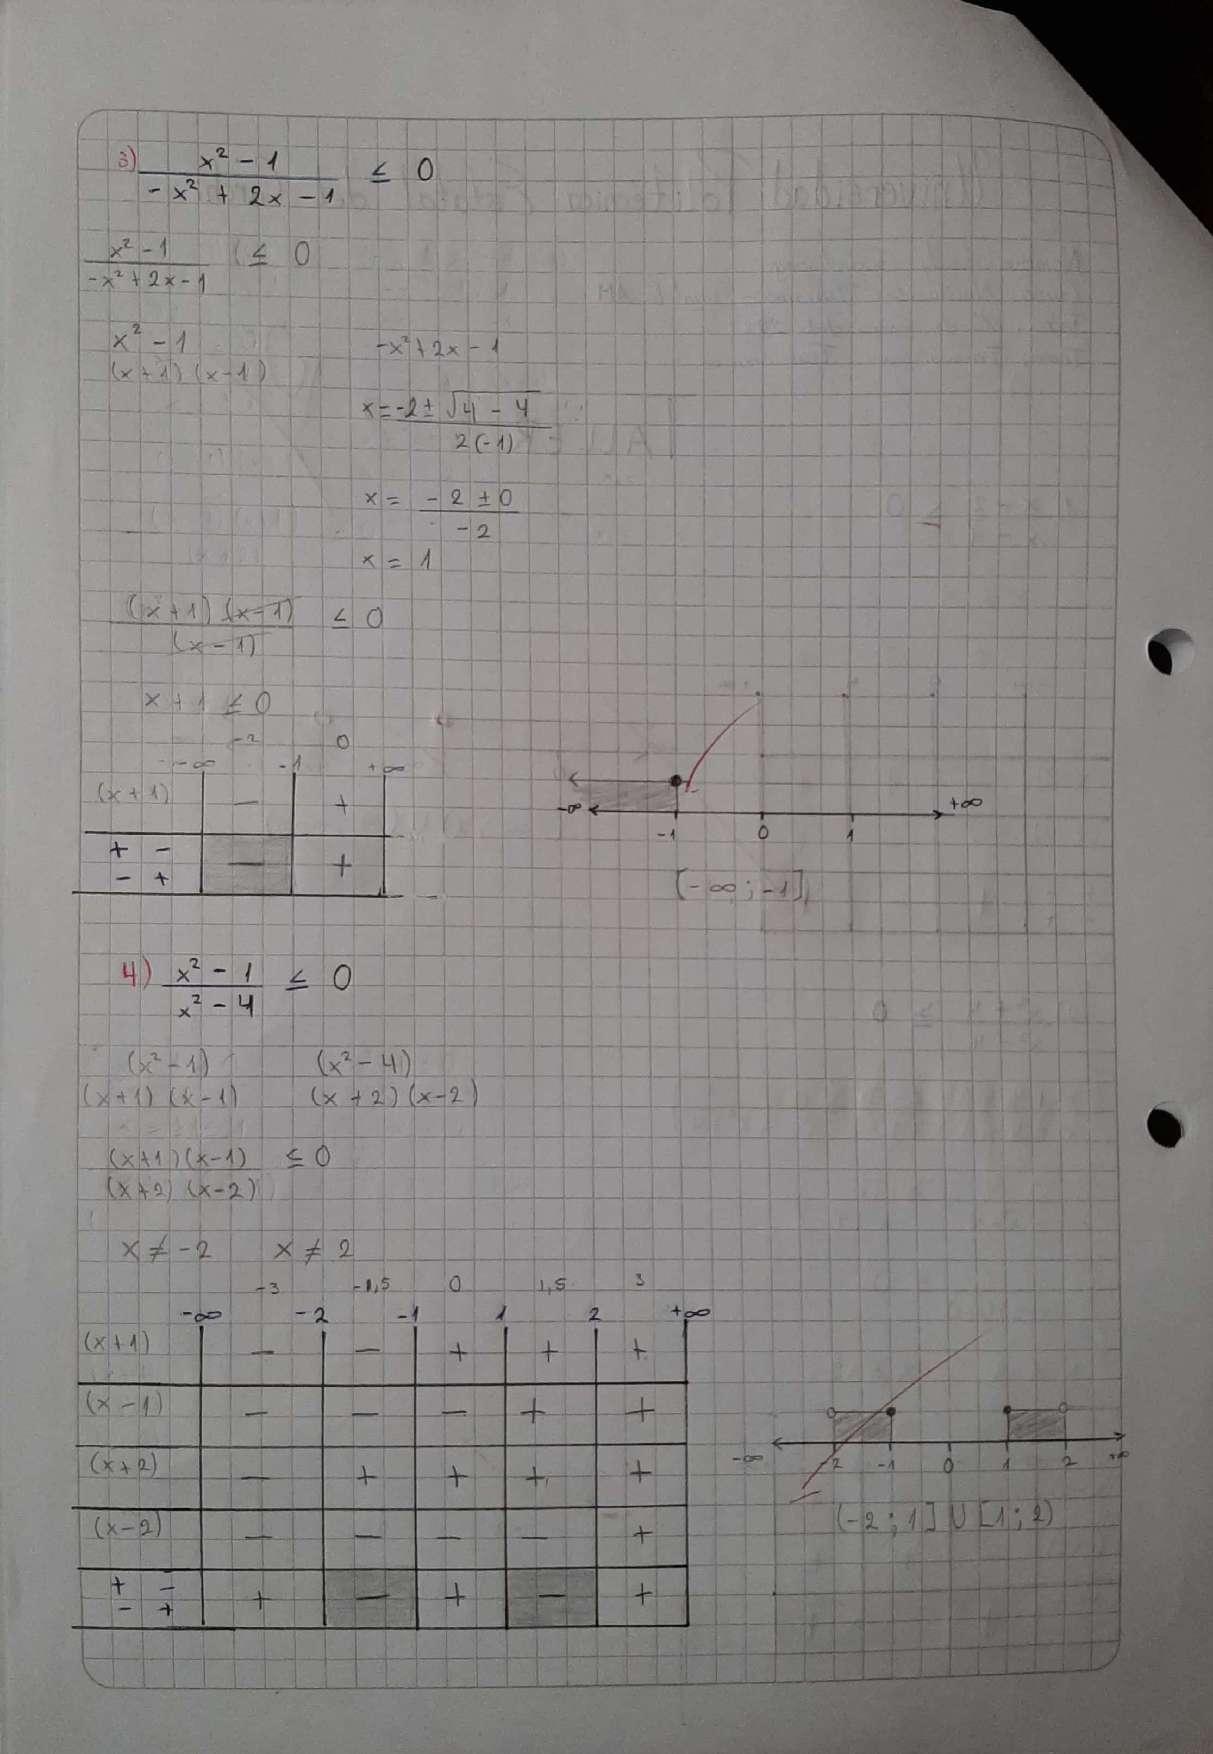 3) x² - 1 / - x² + 2x - 1 ≤ 0
x² - 1 / -x² + 2x - 1 ≤ 0
x² - 1
(x+1) (x-1)
-x² + 2x - 1
x = -2 ± √4 - 4 / 2(-1)
x = - 2 ± 0 / - 2
x = 1
(x+1) (x-1) / (x-1) ≤ 0
x + 1 ≤ 0
-2 0
-∞ -1 +∞
(x+1) - +
+ - - +
- +
-∞ -1 0 1 +∞
[-∞ ; -1]
4) x² - 1 / x² - 4 ≤ 0
(x² - 1) (x² - 4)
(x+1) (x-1) (x+2) (x-2)
(x+1) (x-1) / (x+2) (x-2) ≤ 0
x ≠ -2 x ≠ 2
-3 -1,5 0 1,5 3
-∞ -2 -1 1 2 +∞
(x+1) - - + + +
(x-1) - - - + +
(x+2) - + + + +
(x-2) - - - - +
+ - + - + - +
- +
-∞ -2 -1 0 1 2 +∞
(-2 ; 1] U [1 ; 2)